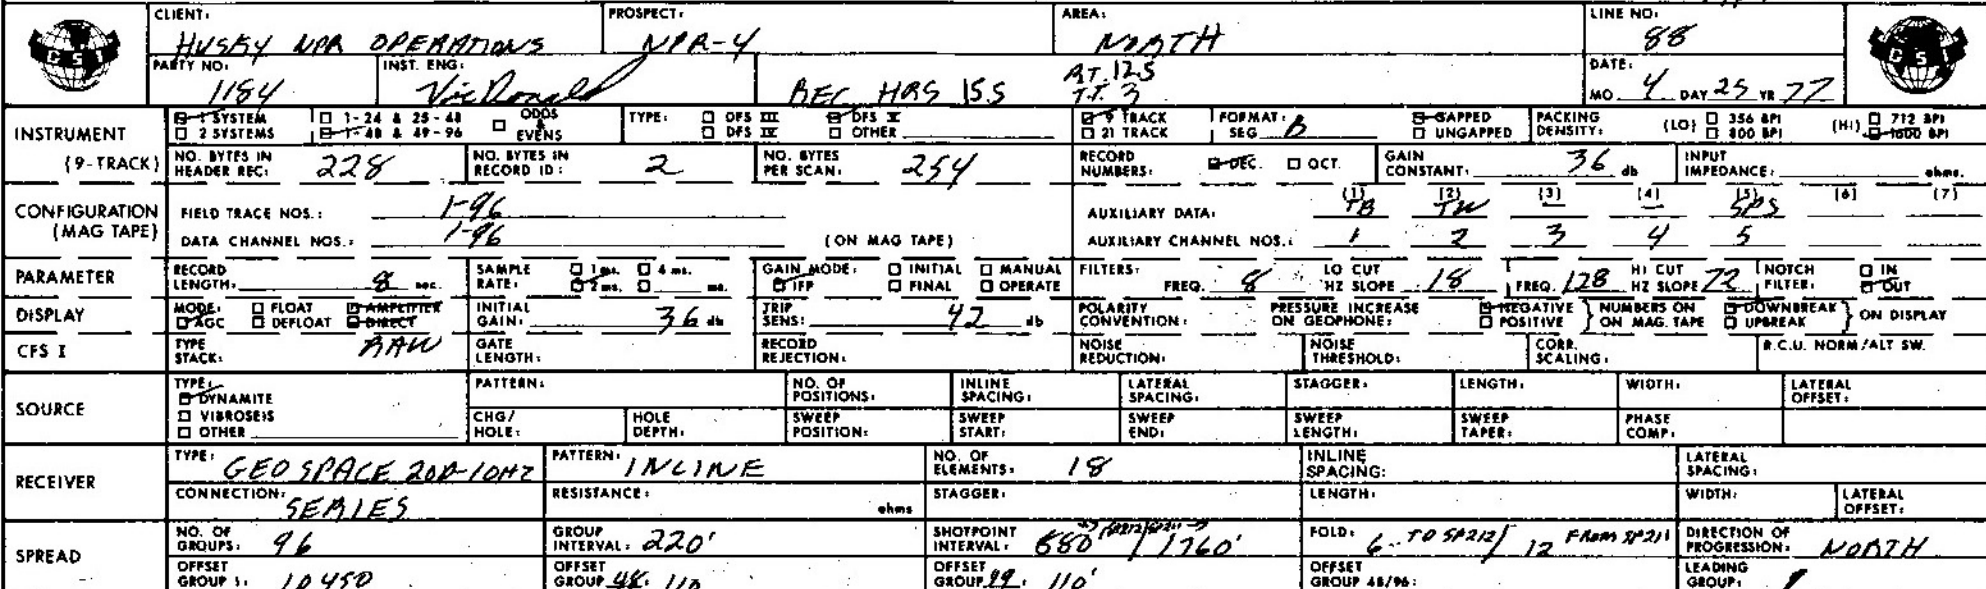 CLIENT: PROSPECT: AREA: LINE NO:
HUSKY NPR OPERATIONS NPR-4 NORTH 88
GSI GSI
PARTY NO: INST. ENG: DATE:
1184 Vic Ronald REC HRS 15.5 RT. 12.5 T.T. 3 MO. 4 DAY 25 YR 77
INSTRUMENT 1 SYSTEM 1-24 & 25-48 ODDS & EVENS TYPE: DFS III DFS V 9 TRACK FORMAT: GAPPED PACKING DENSITY: (LO) 356 BPI (HI) 712 BPI
2 SYSTEMS 1-48 & 49-96 DFS IV OTHER 21 TRACK SEG B UNGAPPED 800 BPI 1600 BPI
(9-TRACK) NO. BYTES IN HEADER REC: 228 NO. BYTES IN RECORD ID: 2 NO. BYTES PER SCAN: 254 RECORD NUMBERS: DEC. OCT. GAIN CONSTANT: 36 db INPUT IMPEDANCE: ohms.
CONFIGURATION (MAG TAPE) FIELD TRACE NOS.: 1-96 AUXILIARY DATA: (1) TB (2) TW (3) — (4) — (5) SPS (6) (7)
DATA CHANNEL NOS.: 1-96 (ON MAG TAPE) AUXILIARY CHANNEL NOS.: 1 2 3 4 5
PARAMETER RECORD LENGTH: 8 sec. SAMPLE RATE: 1 ms. 4 ms. 2 ms. ms. GAIN MODE: INITIAL MANUAL IFP FINAL OPERATE FILTERS: FREQ. 8 LO CUT HZ SLOPE 18 FREQ. 128 HI CUT HZ SLOPE 72 NOTCH FILTER: IN OUT
DISPLAY MODE: FLOAT AMPLIFIER AGC DEFLOAT DIRECT INITIAL GAIN: 36 db TRIP SENS: 42 db POLARITY CONVENTION: PRESSURE INCREASE ON GEOPHONE: NEGATIVE POSITIVE } NUMBERS ON ON MAG. TAPE DOWNBREAK UPBREAK } ON DISPLAY
CFS I TYPE STACK: RAW GATE LENGTH: RECORD REJECTION: NOISE REDUCTION: NOISE THRESHOLD: CORR. SCALING: R.C.U. NORM/ALT SW.
SOURCE TYPE: DYNAMITE VIBROSEIS OTHER PATTERN: NO. OF POSITIONS: INLINE SPACING: LATERAL SPACING: STAGGER: LENGTH: WIDTH: LATERAL OFFSET:
CHG/HOLE: HOLE DEPTH: SWEEP POSITION: SWEEP START: SWEEP END: SWEEP LENGTH: SWEEP TAPER: PHASE COMP:
RECEIVER TYPE: GEOSPACE 20D-10HZ PATTERN: INLINE NO. OF ELEMENTS: 18 INLINE SPACING: LATERAL SPACING:
CONNECTION: SERIES RESISTANCE: ohms STAGGER: LENGTH: WIDTH: LATERAL OFFSET:
SPREAD NO. OF GROUPS: 96 GROUP INTERVAL: 220' SHOTPOINT INTERVAL: 880' / 1760' FOLD: 6 TO SP212 / 12 FROM SP211 DIRECTION OF PROGRESSION: NORTH
OFFSET GROUP 1: 10450 OFFSET GROUP 48: 110 OFFSET GROUP 49: 110' OFFSET GROUP 48/96: LEADING GROUP: